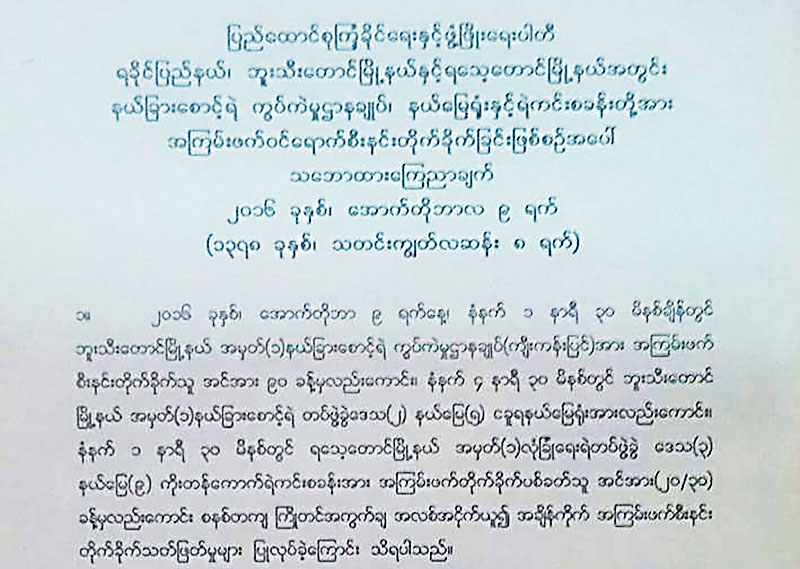 ပြည်ထောင်စုကြံ့ခိုင်ရေးနှင့်ဖွံ့ဖြိုးရေးပါတီ
ရခိုင်ပြည်နယ်၊ ဘူးသီးတောင်မြို့နယ်နှင့်ရသေ့တောင်မြို့နယ်အတွင်း
နယ်ခြားစောင့်ရဲ ကွပ်ကဲမှုဌာနချုပ်၊ နယ်မြေရုံးနှင့်ရဲကင်းစခန်းတို့အား
အကြမ်းဖက်ဝင်ရောက်စီးနင်းတိုက်ခိုက်ခြင်းဖြစ်စဉ်အပေါ်
သဘောထားကြေညာချက်
၂၀၁၆ ခုနှစ်၊ အောက်တိုဘာလ ၉ ရက်
(၁၃၇၈ ခုနှစ်၊ သတင်းကျွတ်လဆန်း ၈ ရက်)
၁။ ၂၀၁၆ ခုနှစ်၊ အောက်တိုဘာ ၉ ရက်နေ့၊ နံနက် ၁ နာရီ ၃၀ မိနစ်ချိန်တွင်
ဘူးသီးတောင်မြို့နယ် အမှတ်(၁)နယ်ခြားစောင့်ရဲ ကွပ်ကဲမှုဌာနချုပ်(ကျီးကန်းပြင်)အား အကြမ်းဖက်
စီးနင်းတိုက်ခိုက်သူ အင်အား ၉၀ ခန့်မှလည်းကောင်း။ နံနက် ၄ နာရီ ၃၀ မိနစ်တွင် ဘူးသီးတောင်
မြို့နယ် အမှတ်(၁)နယ်ခြားစောင့်ရဲ တပ်ဖွဲ့ခွဲဒေသ(၂) နယ်မြေ(၅) ငခူရနယ်မြေရုံးအားလည်းကောင်း။
နံနက် ၁ နာရီ ၃၀ မိနစ်တွင် ရသေ့တောင်မြို့နယ် အမှတ်(၁)လုံခြုံရေးရဲတပ်ဖွဲ့ခွဲ ဒေသ(၃)
နယ်မြေ(၉) ကိုးတန်ကောက်ရဲကင်းစခန်းအား အကြမ်းဖက်တိုက်ခိုက်ပစ်ခတ်သူ အင်အား(၂၀/၃၀)
ခန့်မှလည်းကောင်း စနစ်တကျ ကြိုတင်အကွက်ချ အလစ်အငိုက်ယူ၍ အချိန်ကိုက် အကြမ်းဖက်စီးနင်း
တိုက်ခိုက်သတ်ဖြတ်မှုများ ပြုလုပ်ခဲ့ကြောင်း သိရပါသည်။